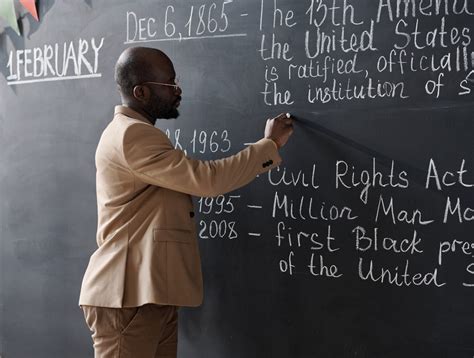 1FEBRUARY
DEC 6, 1865 - The 13th Amen
the United States
is ratified, officiall
the institution of s
8, 1963
Civil Rights Act
1995 - Million Man Ma
2008 - first Black pre
of the United S